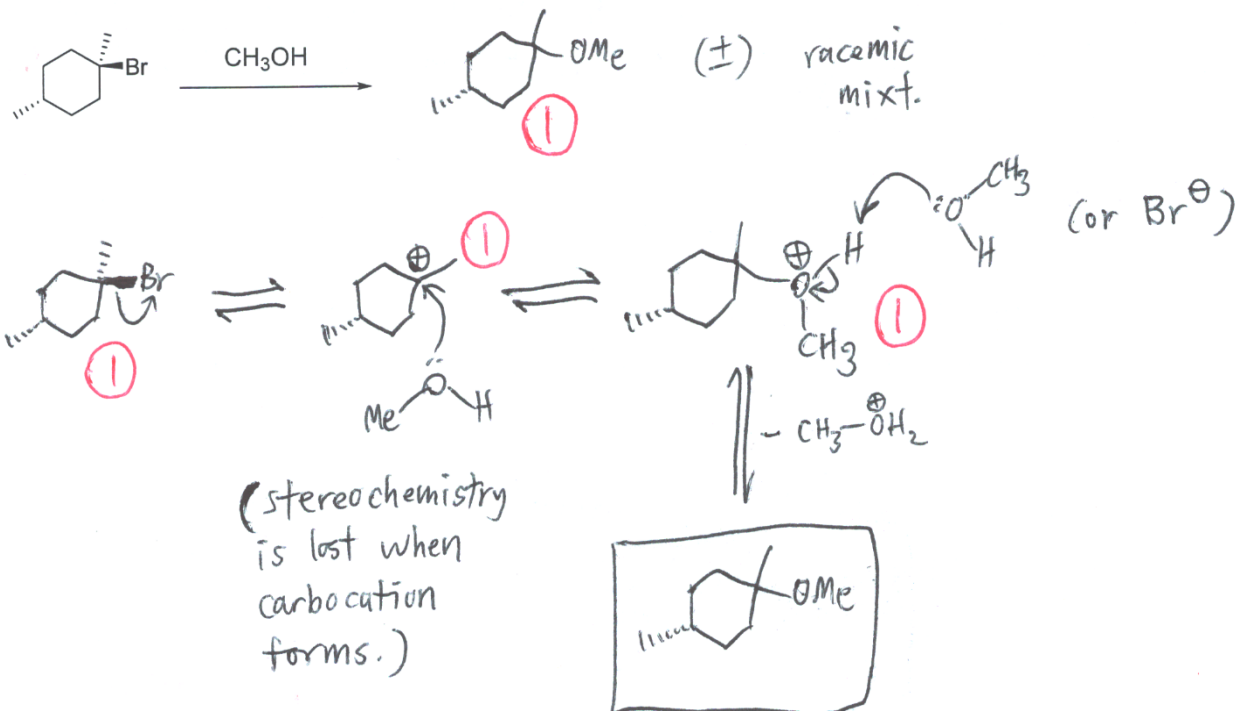 Br
CH₃OH
OMe
(±) racemic
mixt.
①
Br
①
⊕
①
Me O H
⊕
O H
CH₃
①
:Ö CH₃
H
(or Br⊖)
- CH₃-O⊕H₂
(stereochemistry
is lost when
carbocation
forms.)
OMe